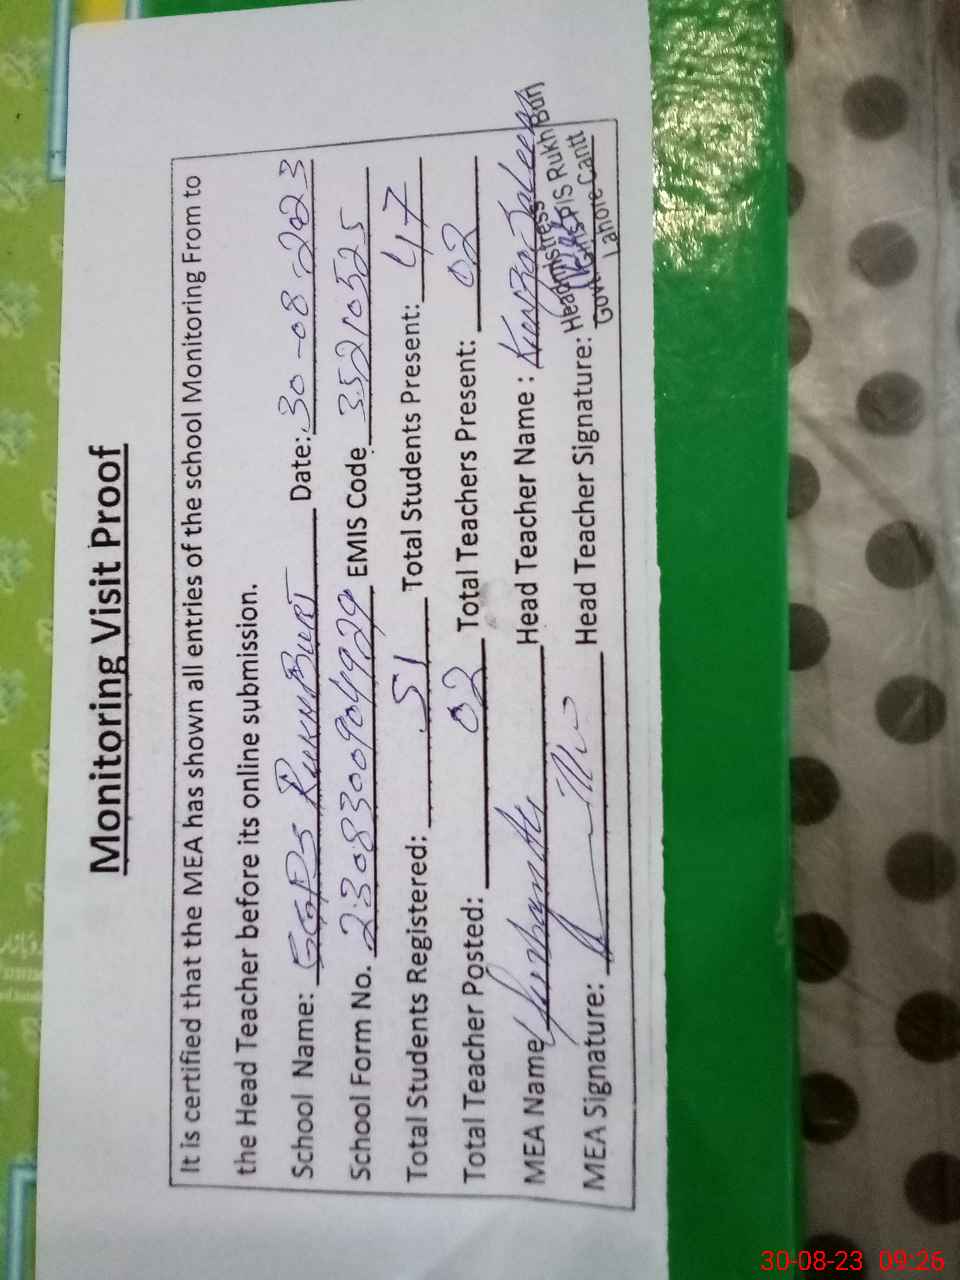 Monitoring Visit Proof
It is certified that the MEA has shown all entries of the school Monitoring From to
the Head Teacher before its online submission.
School Name: GGPS RUKH BURJ Date: 30-08-2023
School Form No. 2308300904929 EMIS Code 35210525
Total Students Registered: 51 Total Students Present: 47
Total Teacher Posted: 02 Total Teachers Present: 02
MEA Name Head Teacher Name : Kunza Saleem
MEA Signature: Head Teacher Signature:
Headmistress
Govt. PIS Rukh Burj
Lahore Cantt
30-08-23 09:26